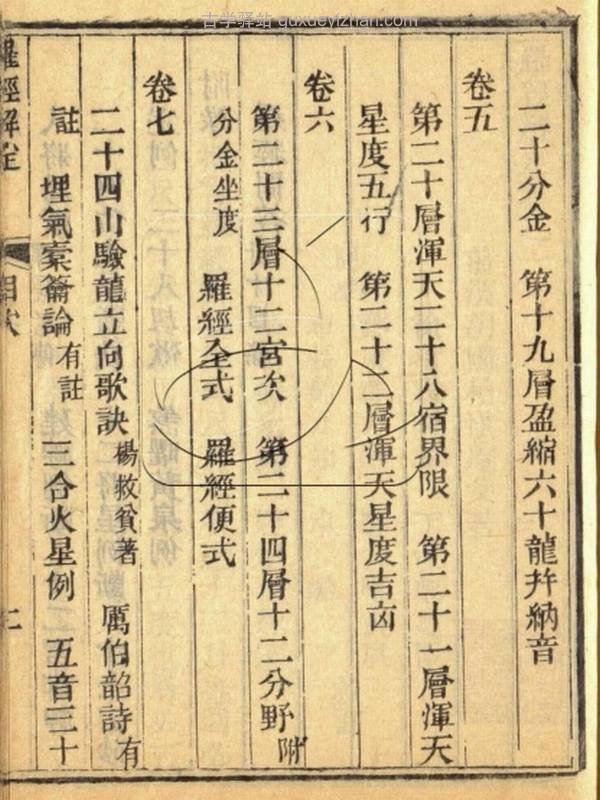 古学驿站 guxueyizhan.com
二十分金　第十九層盈縮六十龍幷納音
卷五
第二十層渾天二十八宿界限　第二十一層渾天
星度五行　第二十二層渾天星度吉凶
卷六
第二十三層十二宮次　第二十四層十二分野附
分金坐度　羅經全式　羅經便式
卷七
二十四山驗龍立向歌訣楊救貧著　厲伯韶詩有
註　埋氣橐籥論有註　三合火星例　五音三十
羅經解定　目次　二